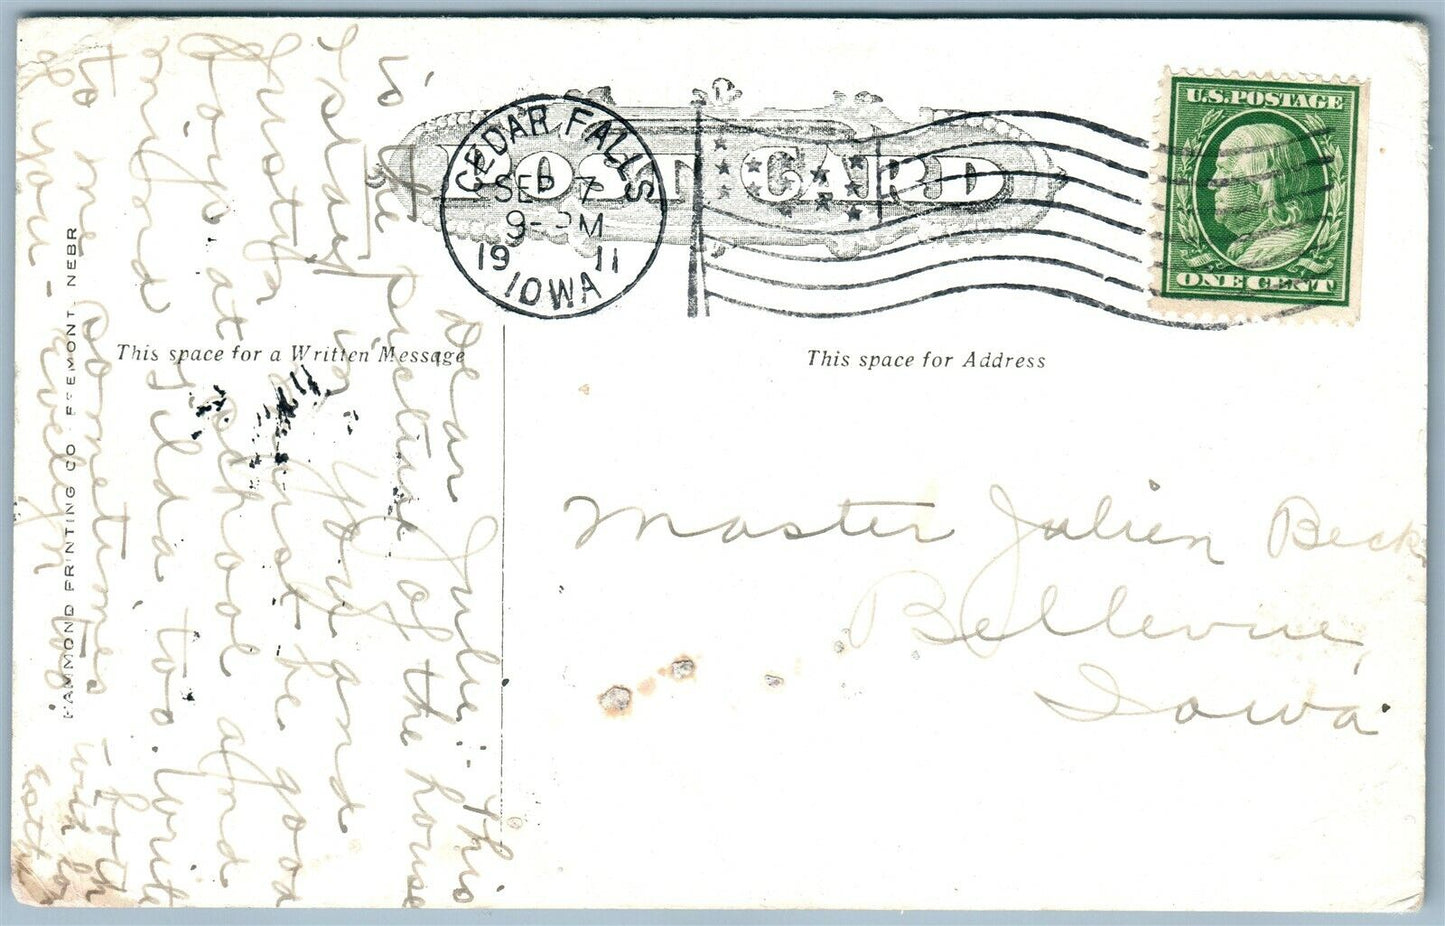 POST CARD
CEDAR FALLS
SEP 7
9-PM
19 11
IOWA
U.S. POSTAGE
ONE CENT
This space for a Written Message
This space for Address
HAMMOND PRINTING CO FREMONT, NEBR
Master Julien Beck
Bellevue,
Iowa.
Dear Julie: This
is the picture of the house
I stay in. You and
must be good
boys at school and
mind Tilda too. Write
to me sometimes